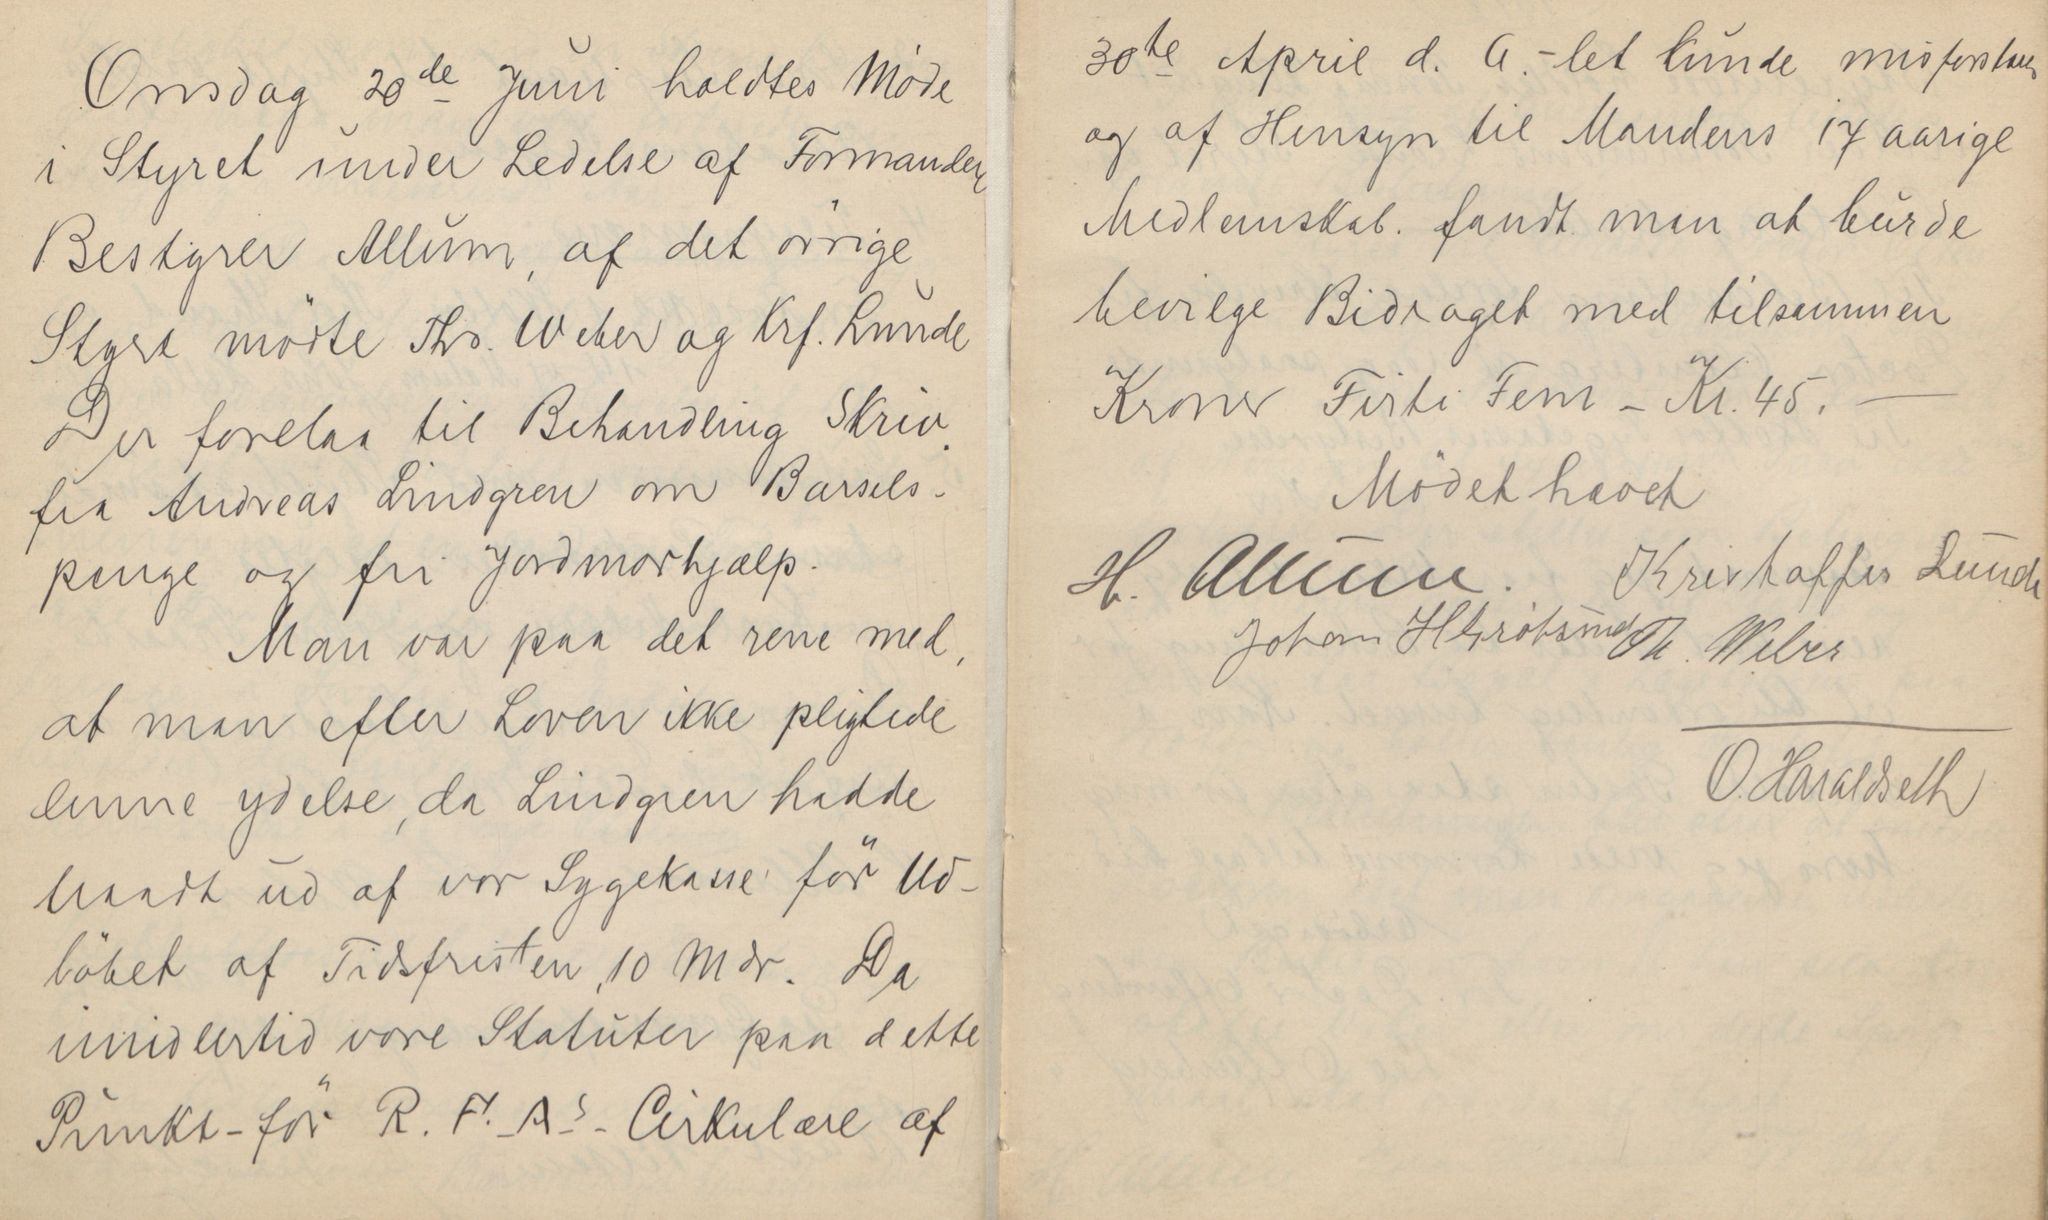 Onsdag 20de Juni holdtes Møde
i Styret under Ledelse af Formanden
Bestyrer Allum, af det övrige
Styre mödte Ths. Weber og Krf. Lunde
Der forelaa til Behandling Skriv.
fra Andreas Lindgren om Barsels-
penge og fri Jordmorhjælp.
Man var paa det rene med,
at man efter Loven ikke pligtede
denne ydelse, da Lindgren hadde
traadt ud af vor Sygekasse för Ud-
löbet af Tidsfristen, 10 Mdr. Da
imidlertid vore Statuter paa dette
Punkt - för R. F. A's - Cirkulære af
30te April d. A. - let kunde misforstaaes
og af Hensyn til Mandens 17 aarige
Medlemskab. fandt man at burde
bevilge Bidraget med tilsammen
Kroner Firti Fem - Kr. 45. —
Mödet hævet
H. Allum. Kristoffer Lunde
Johan Th. Weber
O. Haraldseth